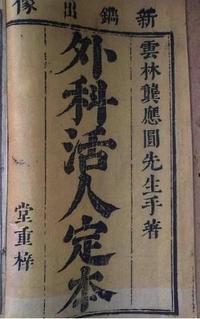 新鐫出像
雲林龔應圓先生手著
外科活人定本
堂重梓